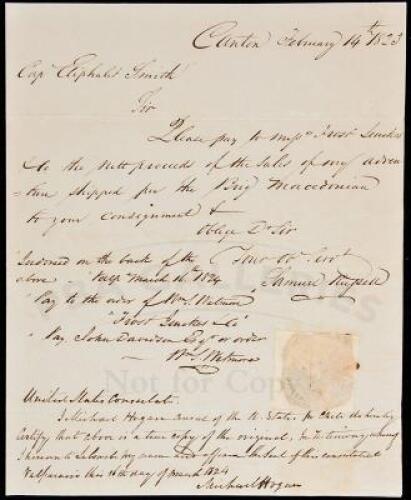 Canton February 14th 1823
Capt Eliphalet Smith
Sir
Please pay to Messrs Frost Jenckes
& Co the nett proceeds of the sales of my adven
=ture shipped per the Brig Macedonian
to your consignment &
Oblige Dr Sir
Your Obt Servt
Samuel Russell
"Indorsed on the back of the
above " Valpo March 16th 1824
" Pay to the order of Wm S. Wetmore
" Frost Jenckes & Co
" Pay John Davidson Esqr or order
" Wm S. Wetmore
Not for
United States Consulate.
I Michael Hogan Consul of the U. States in Chile do hereby
Certify that above is a true copy of the original, In testimony whereof
I hereunto subscribe my name and affix the Seal of this consulate at
Valparaiso this 16th day of March 1824
Michael Hogan